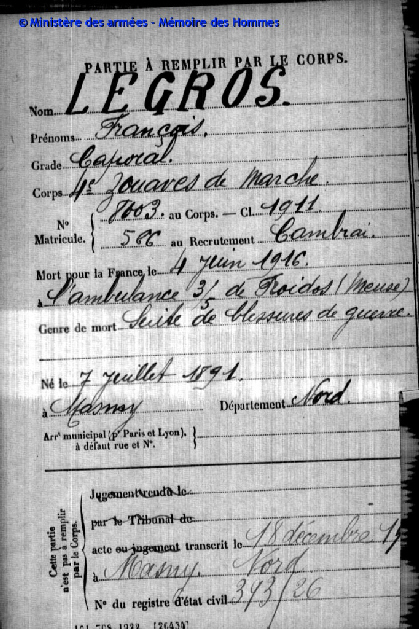 © Ministère des armées - Mémoire des Hommes
PARTIE À REMPLIR PAR LE CORPS.
Nom LEGROS.
Prénoms François.
Grade Caporal.
Corps 4e Zouaves de Marche.
N° Matricule. { 8003. au Corps. — Cl. 1911
586 au Recrutement Cambrai
Mort pour la France, le 4 Juin 1916.
à l'ambulance 3/5 de Froidos (Meuse)
Genre de mort Suite de blessures de guerre.
Né le 7 Juillet 1891.
à Masny Département Nord.
Arrt municipal (pr Paris et Lyon), à défaut rue et N°. {
Cette partie n'est pas à remplir par le Corps.
Jugement rendu le
par le Tribunal de
acte ou jugement transcrit le 18 décembre
à Masny. Nord
N° du registre d'état civil 313/26